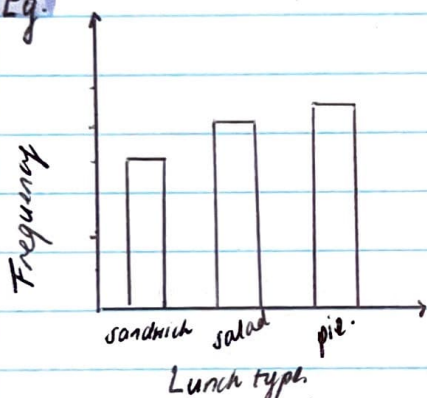 Eg.
Frequency
sandwich salad pie.
Lunch type.